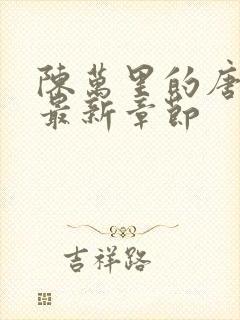 陳萬里的唐
最新章節
吉祥路